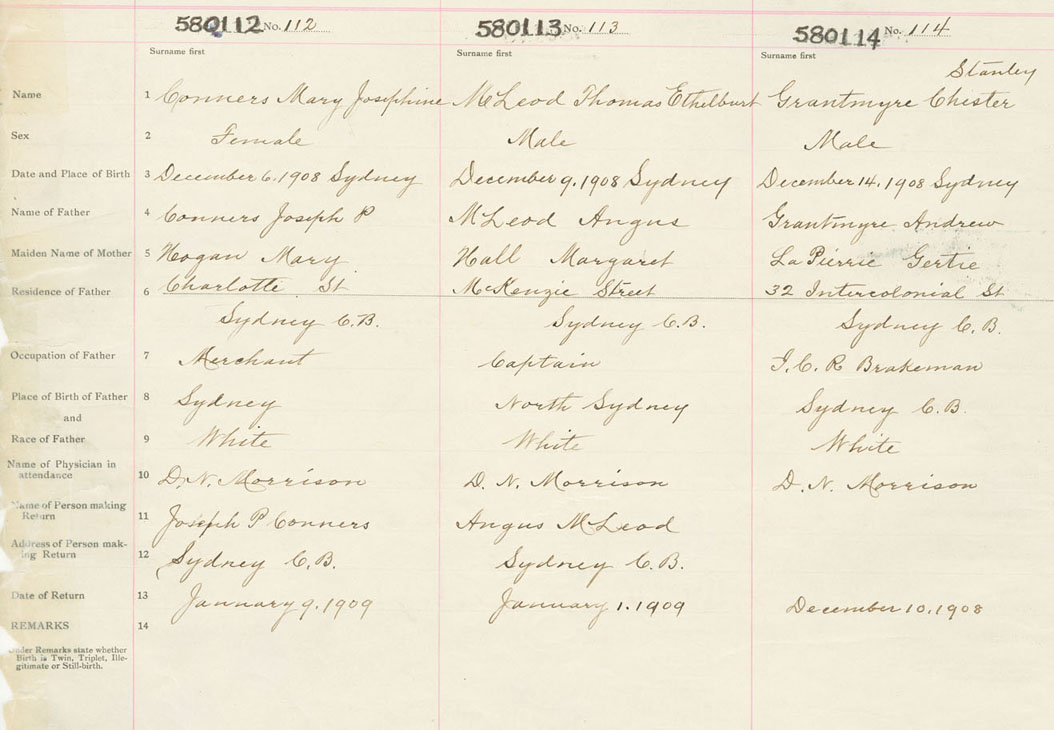 580112 No. 112 580113 No. 113 580114 No. 114
Surname first Surname first Surname first
Stanley
Name 1 Conners Mary Josephine McLeod Thomas Ethelburt Grantmyre Chester
Sex 2 Female Male Male
Date and Place of Birth 3 December 6, 1908 Sydney December 9, 1908 Sydney December 14, 1908 Sydney
Name of Father 4 Conners Joseph P McLeod Angus Grantmyre Andrew
Maiden Name of Mother 5 Hogan Mary Hall Margaret La Pierrie Gertie
Residence of Father 6 Charlotte St McKenzie Street 32 Intercolonial St
Sydney C.B. Sydney C.B. Sydney C.B.
Occupation of Father 7 Merchant Captain I.C.R Brakeman
Place of Birth of Father 8 Sydney North Sydney Sydney C.B.
and
Race of Father 9 White White White
Name of Physician in
attendance 10 D.N. Morrison D.N. Morrison D.N. Morrison
Name of Person making
Return 11 Joseph P Conners Angus McLeod
Address of Person mak-
ing Return 12 Sydney C.B. Sydney C.B.
Date of Return 13 January 9, 1909 January 1, 1909 December 10, 1908
REMARKS 14
Under Remarks state whether
Birth is Twin, Triplet, Ille-
gitimate or Still-birth.